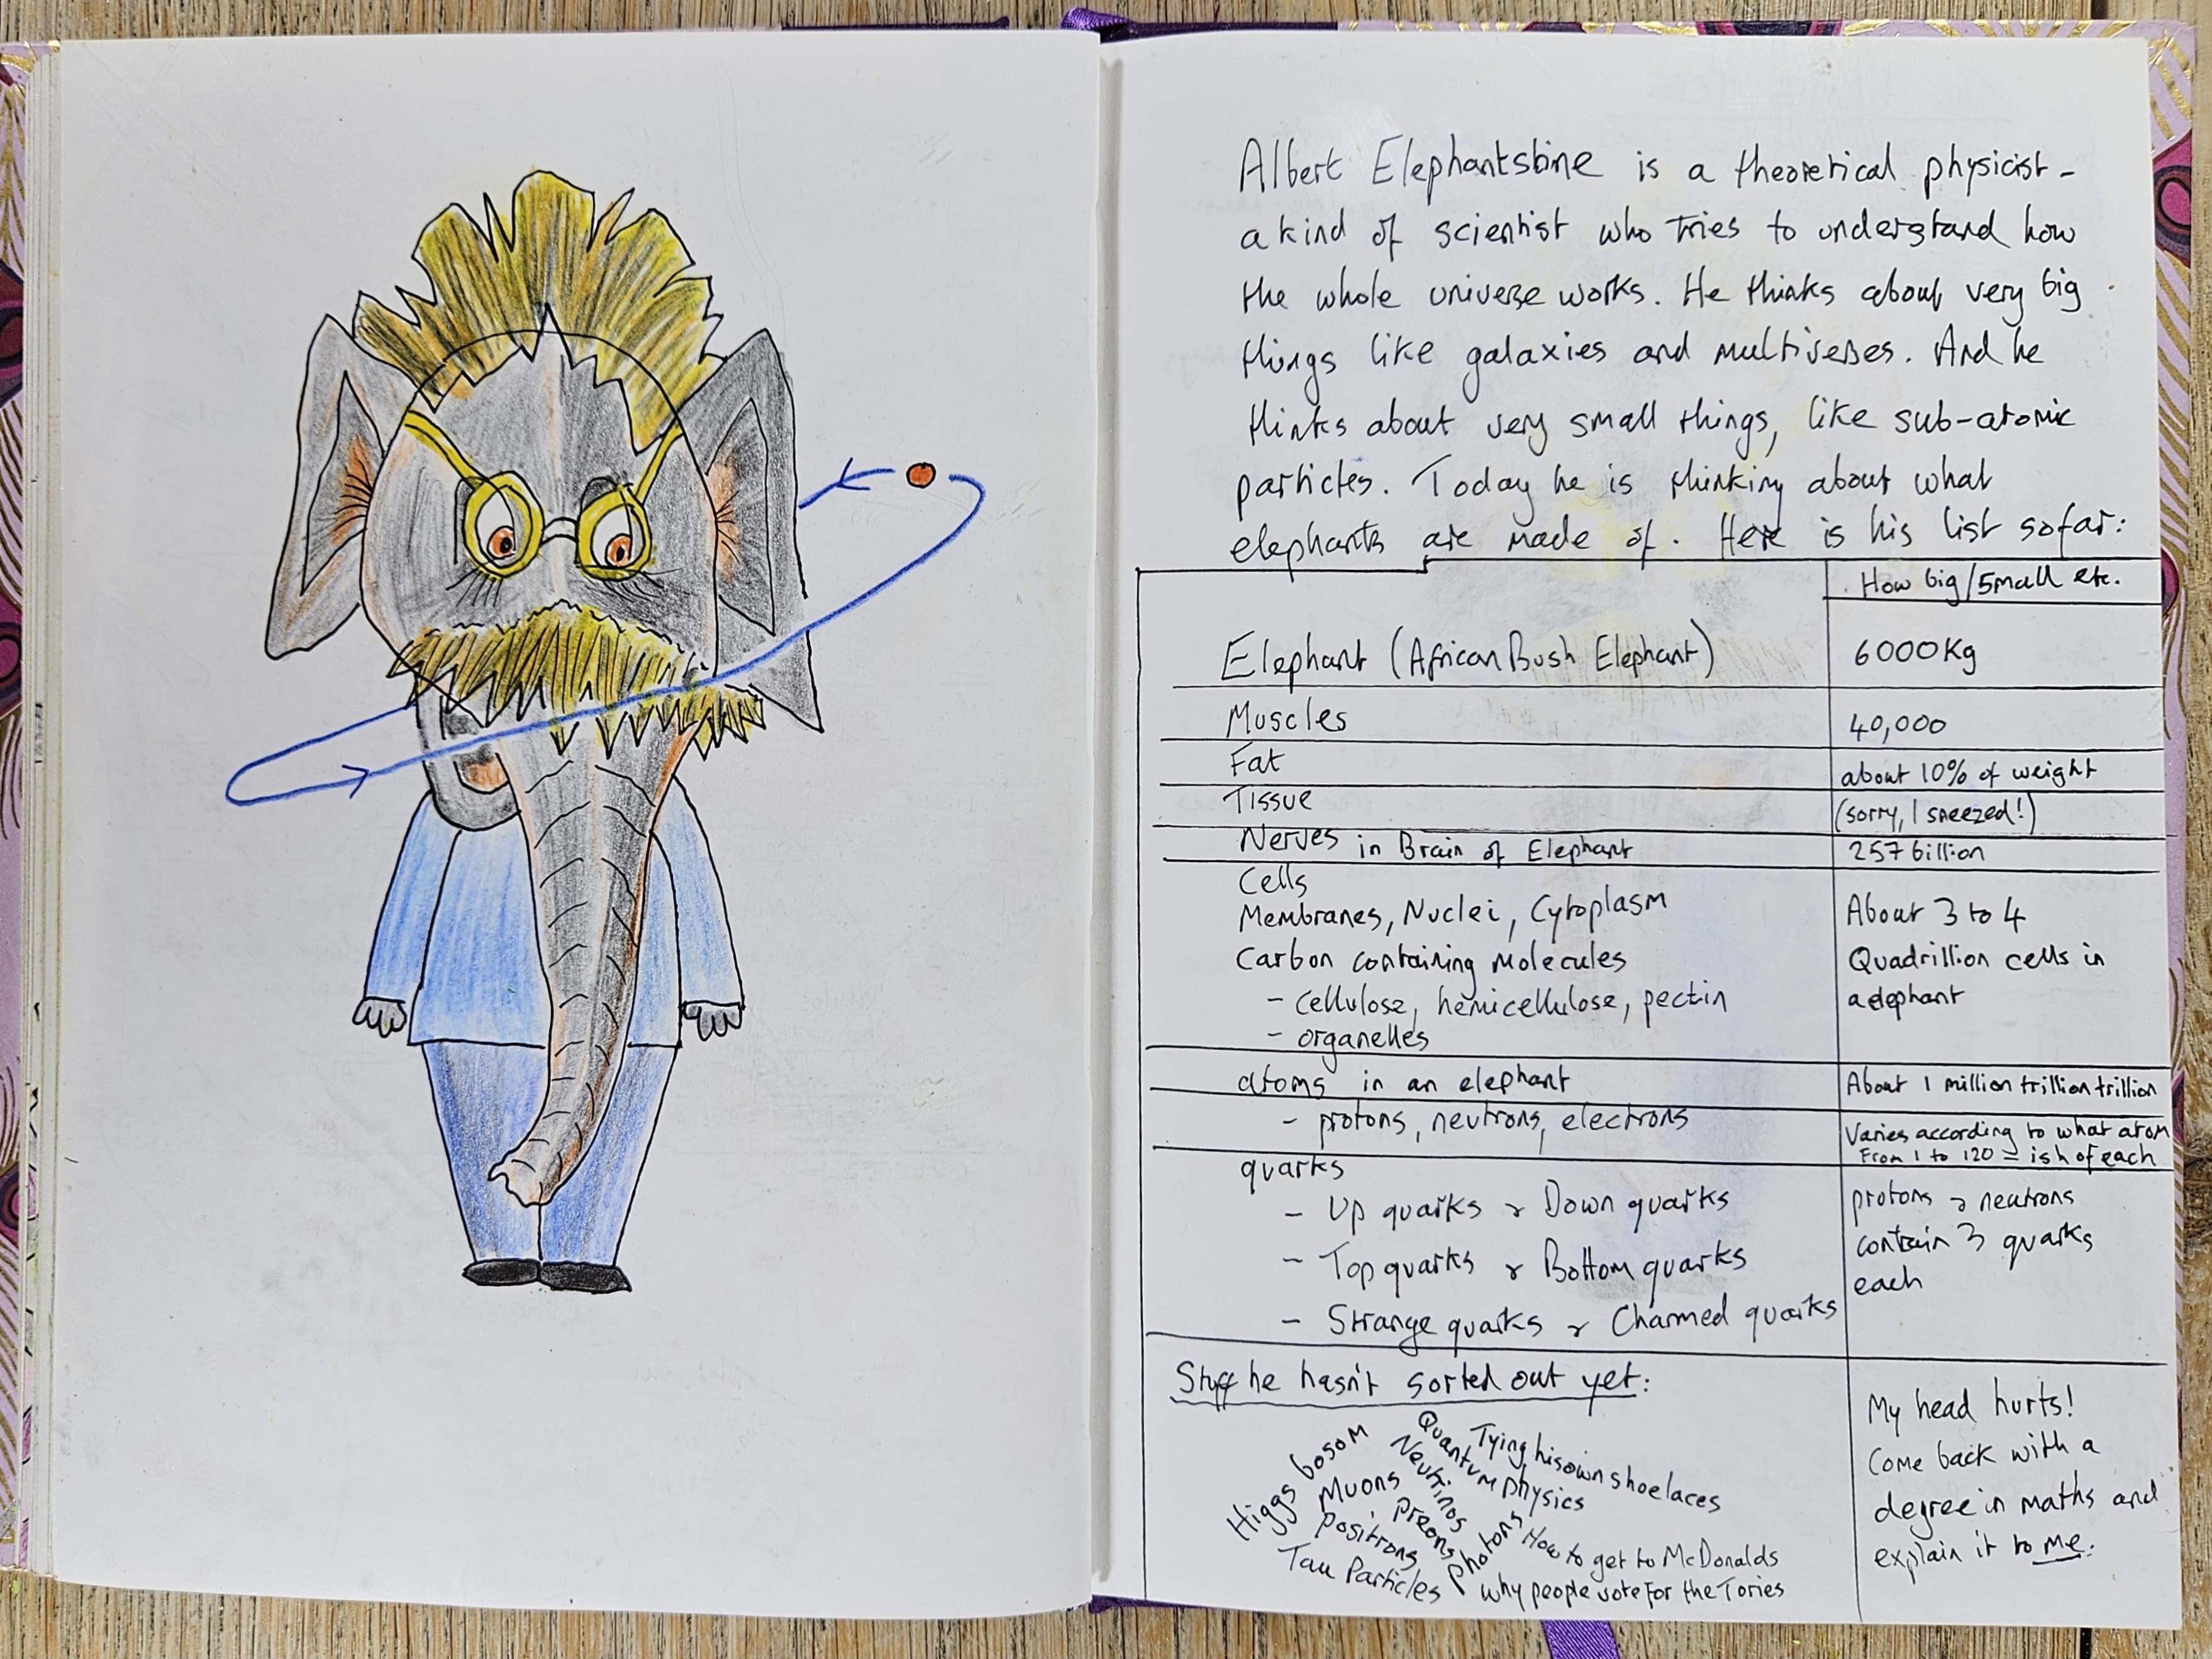 Albert Elephantstine is a theoretical physicist -
a kind of scientist who tries to understand how
the whole universe works. He thinks about very big
things like galaxies and multiverses. And he
thinks about very small things, like sub-atomic
particles. Today he is thinking about what
elephants are made of. Here is his list so far:
How big/Small etc.
Elephant (African Bush Elephant) 6000Kg
Muscles 40,000
Fat about 10% of weight
Tissue (sorry, I sneezed!)
Nerves in Brain of Elephant 257 billion
Cells
Membranes, Nuclei, Cytoplasm About 3 to 4
Carbon containing molecules Quadrillion cells in
- cellulose, hemicellulose, pectin a elephant
- organelles
atoms in an elephant About 1 million trillion trillion
- protons, neutrons, electrons Varies according to what atom
From 1 to 120 = ish of each
quarks
- Up quarks & Down quarks protons & neutrons
contain 3 quarks
- Top quarks & Bottom quarks each
- Strange quarks & Charmed quarks
Stuff he hasn't sorted out yet:
My head hurts!
Come back with a
degree in maths and
explain it to me.
Higgs bosom
Muons
Positrons
Tau Particles
Neutrinos
Preons
Quantum physics
Photons
Tying his own shoelaces
How to get to McDonalds
Why people vote for the Tories